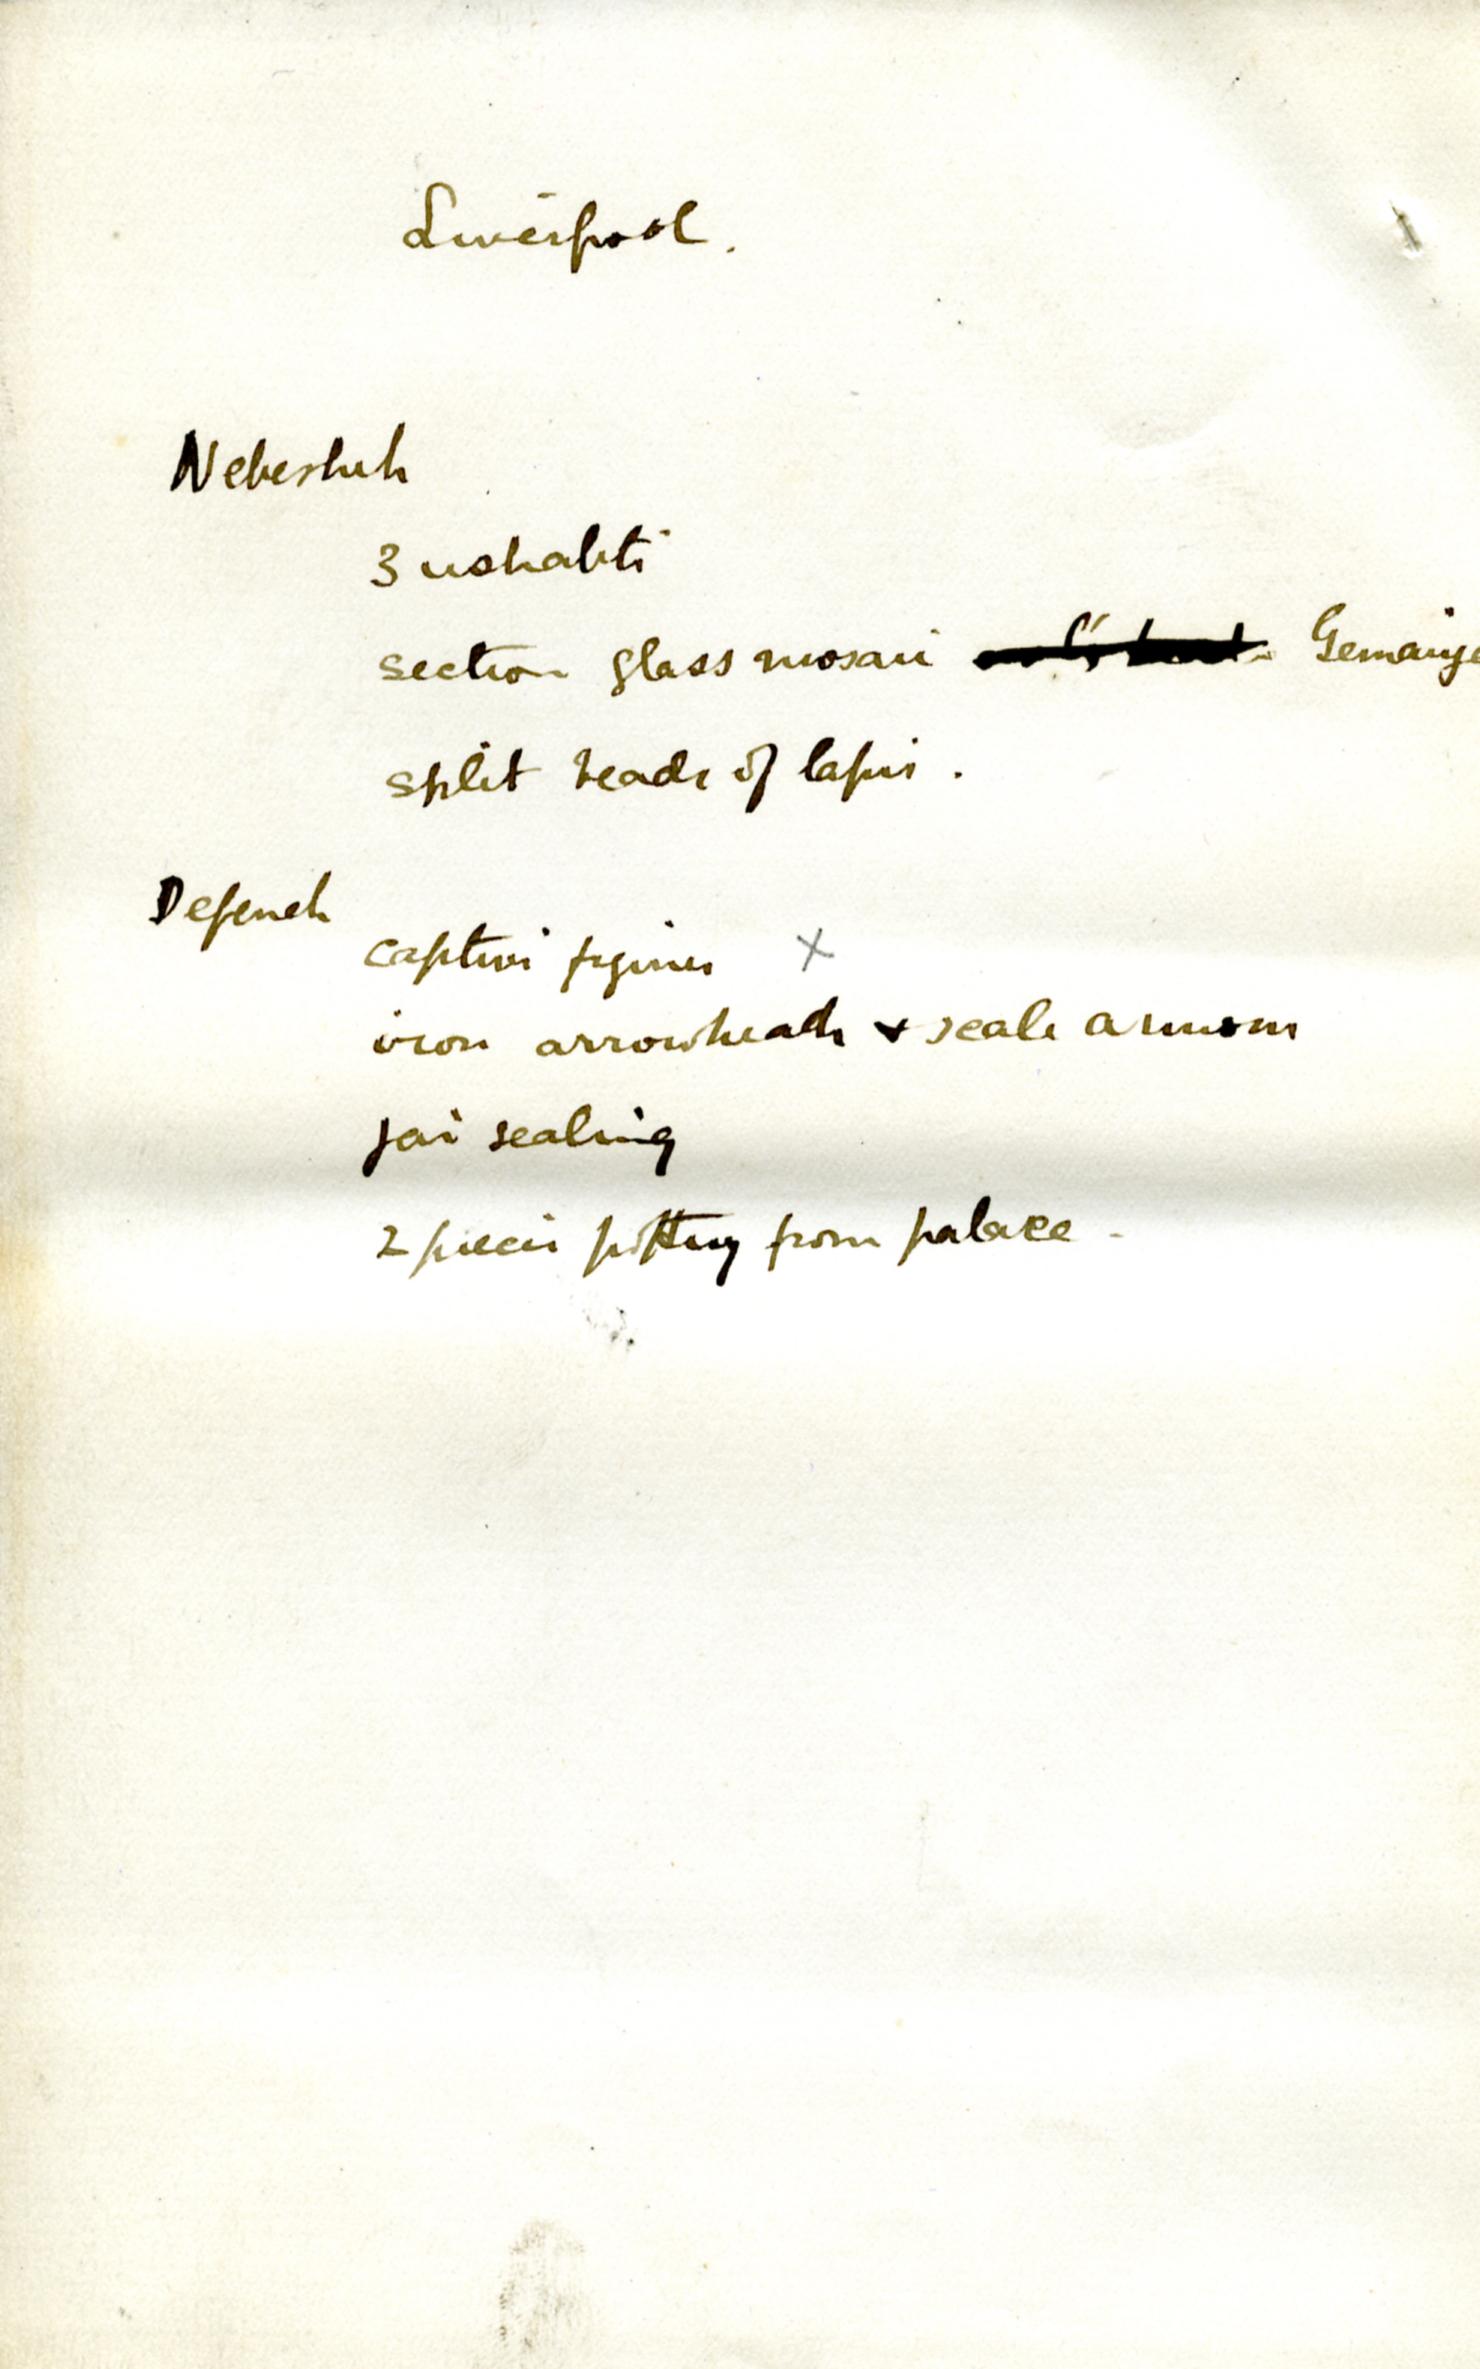 Liverpool.
Nebesheh
3 ushabti
section glass mosaic Gemaiye
split beads of lapis.
Defeneh
captive figures X
iron arrowheads & scale armour
jar sealing
2 pieces pottery from palace -